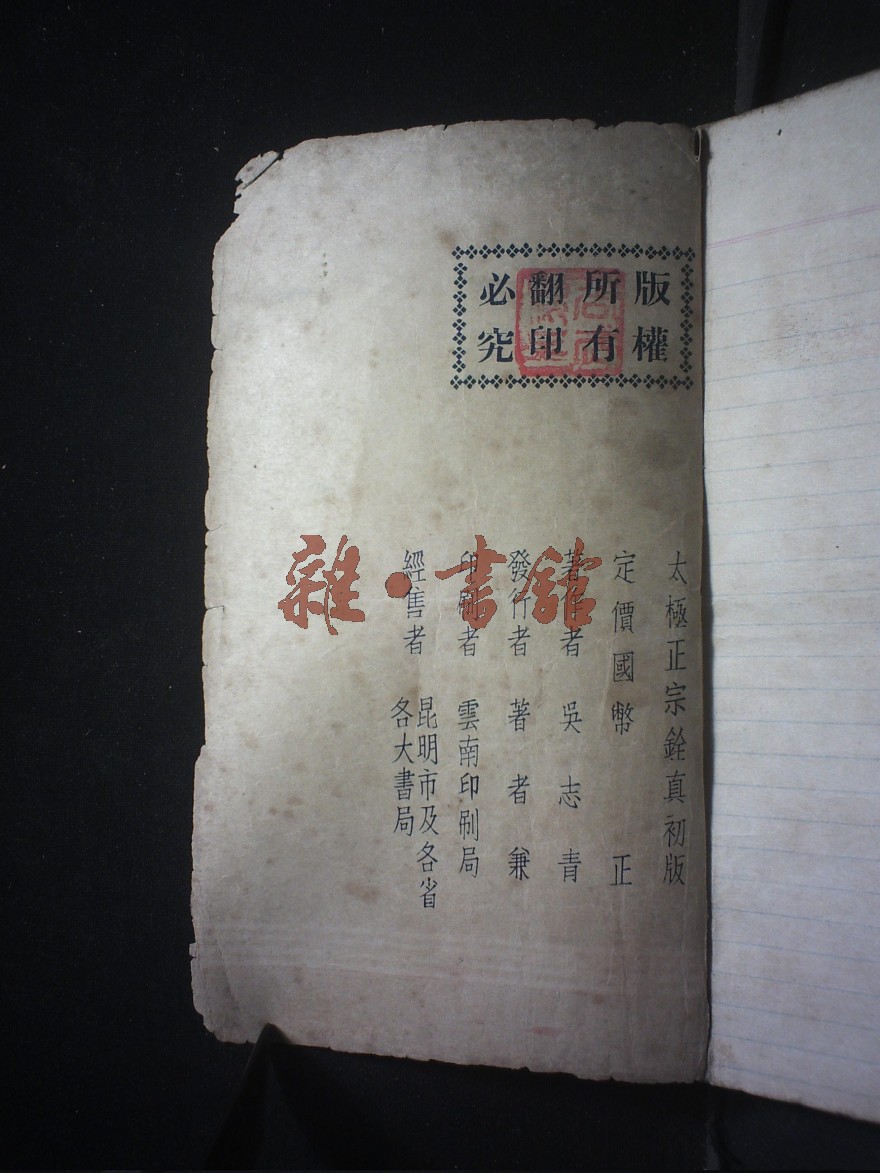 版權所有翻印必究
太極正宗銓真初版
定價國幣 正
著作者 吳志青
發行者 著者兼
印刷者 雲南印刷局
經售者 昆明市及各省
各大書局
雜·書館